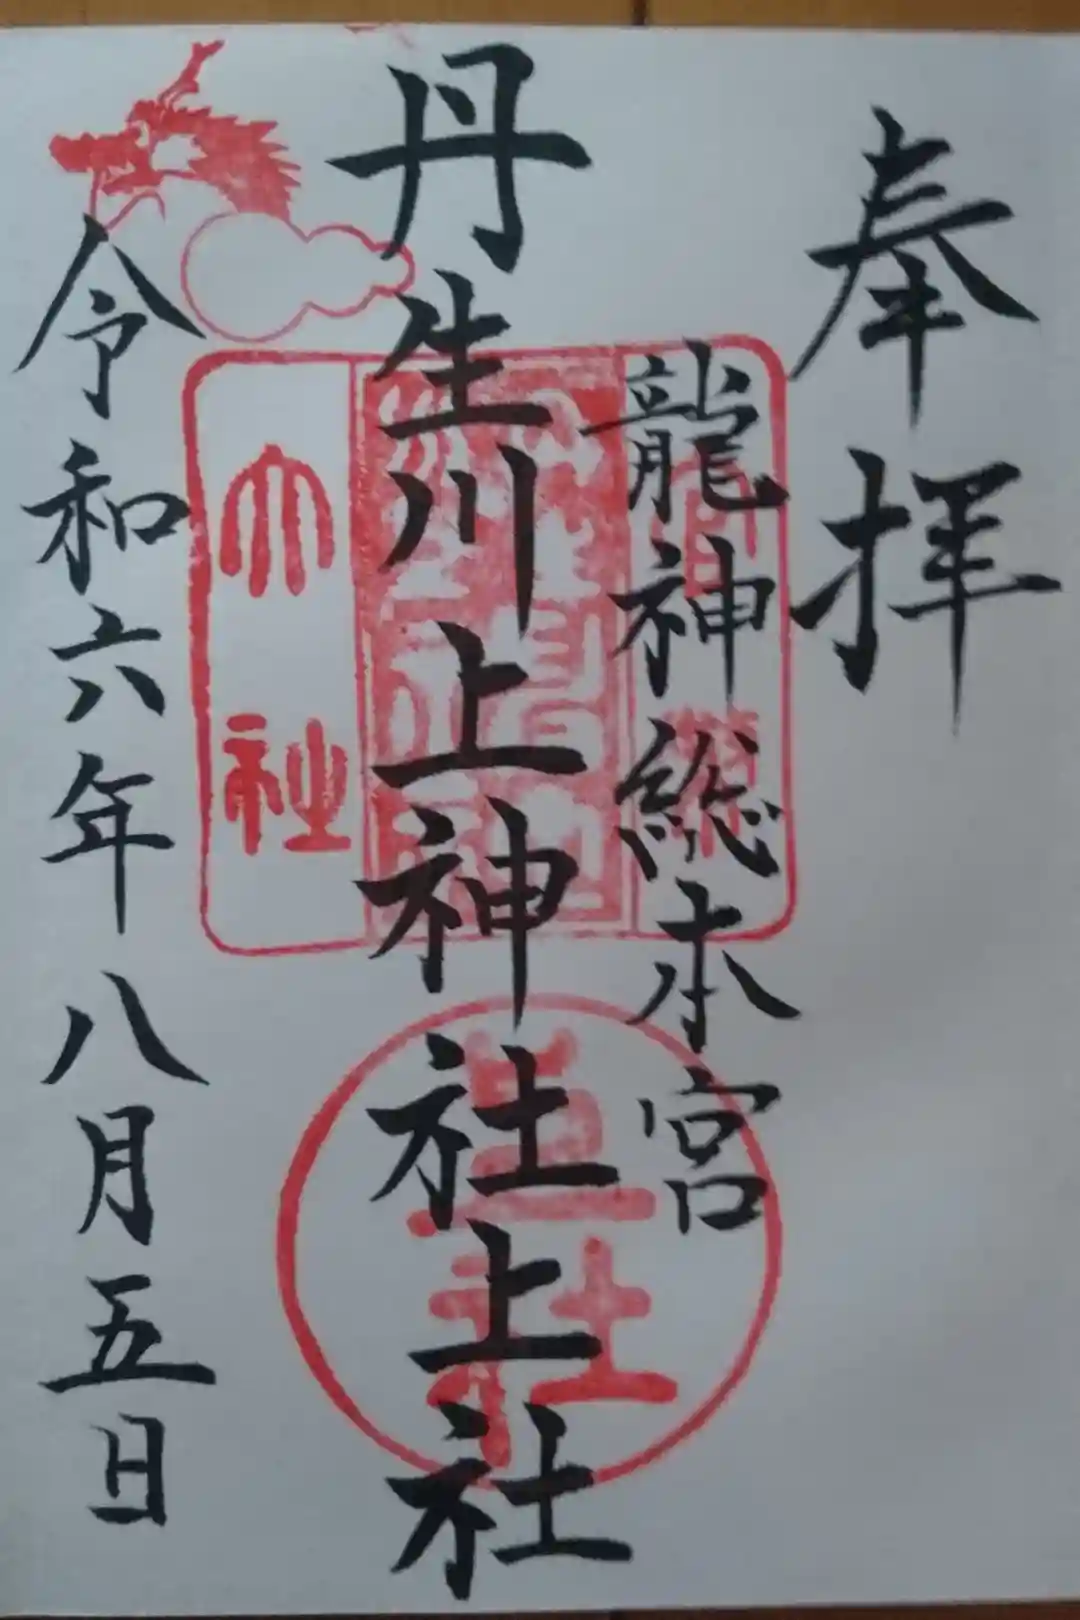 奉拝
龍神総本宮
丹生川上神社上社
令和六年八月五日
大社
上社